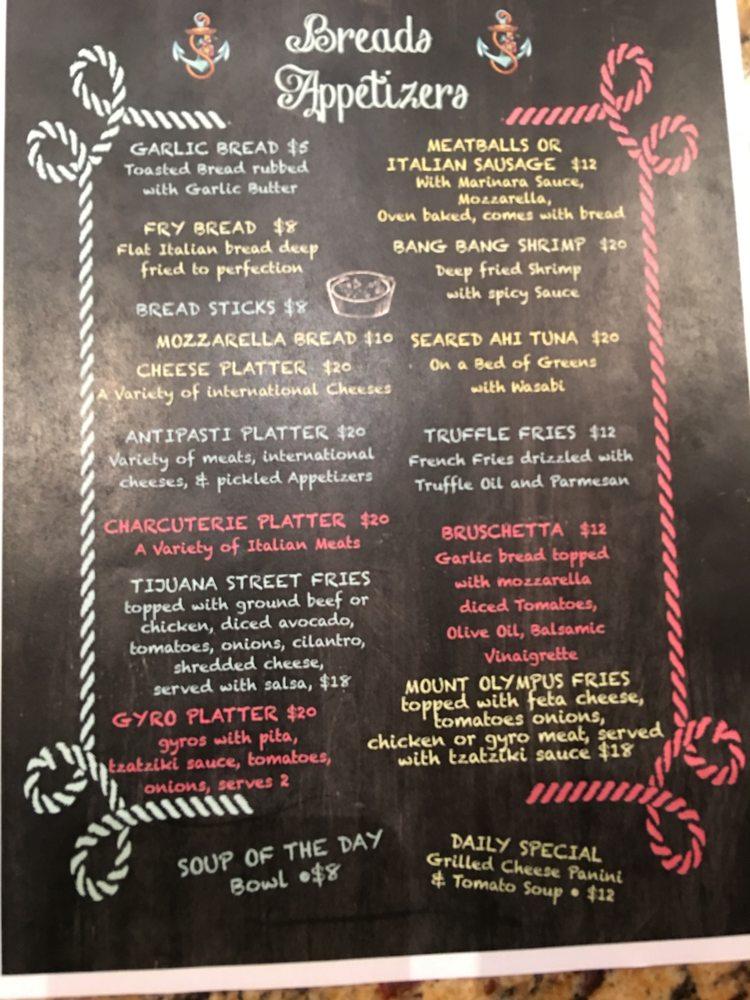 Breads
Appetizers
GARLIC BREAD $5
Toasted Bread rubbed
with Garlic Butter
FRY BREAD $8
Flat Italian bread deep
fried to perfection
BREAD STICKS $8
MOZZARELLA BREAD $10
CHEESE PLATTER $20
A Variety of international Cheeses
ANTIPASTI PLATTER $20
Variety of meats, international
cheeses, & pickled Appetizers
CHARCUTERIE PLATTER $20
A Variety of Italian Meats
TIJUANA STREET FRIES
topped with ground beef or
chicken, diced avocado,
tomatoes, onions, cilantro,
shredded cheese,
served with salsa, $18
GYRO PLATTER $20
gyros with pita,
tzatziki sauce, tomatoes,
onions, serves 2
SOUP OF THE DAY
Bowl •$8
MEATBALLS OR
ITALIAN SAUSAGE $12
With Marinara Sauce,
Mozzarella,
Oven baked, comes with bread
BANG BANG SHRIMP $20
Deep fried Shrimp
with spicy Sauce
SEARED AHI TUNA $20
On a Bed of Greens
with Wasabi
TRUFFLE FRIES $12
French Fries drizzled with
Truffle Oil and Parmesan
BRUSCHETTA $12
Garlic bread topped
with mozzarella
diced Tomatoes,
Olive Oil, Balsamic
Vinaigrette
MOUNT OLYMPUS FRIES
topped with feta cheese,
tomatoes onions,
chicken or gyro meat, served
with tzatziki sauce $18
DAILY SPECIAL
Grilled Cheese Panini
& Tomato Soup • $12